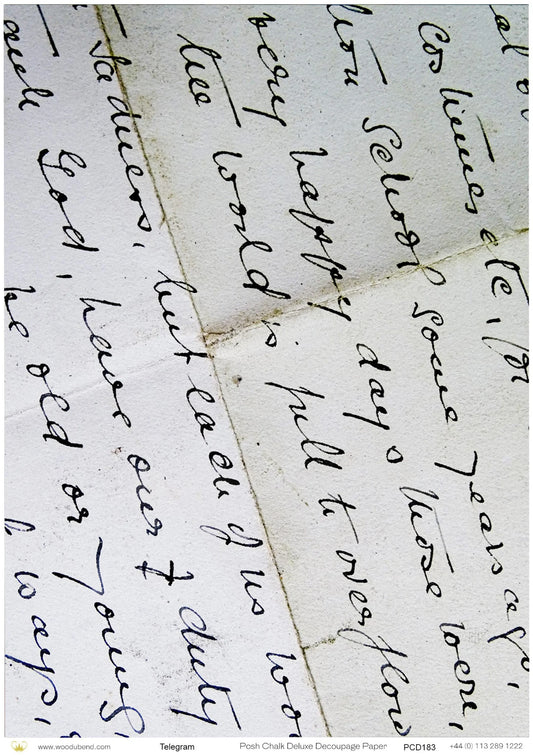 Costumes etc, for
School some years ago,
very happy days those were,
the world is full to overflow
Sadness, but each of us wo
God, have our duty
be old or young
ways,
www.woodubend.com
Telegram
Posh Chalk Deluxe Decoupage Paper
PCD183
+44 (0) 113 289 1222